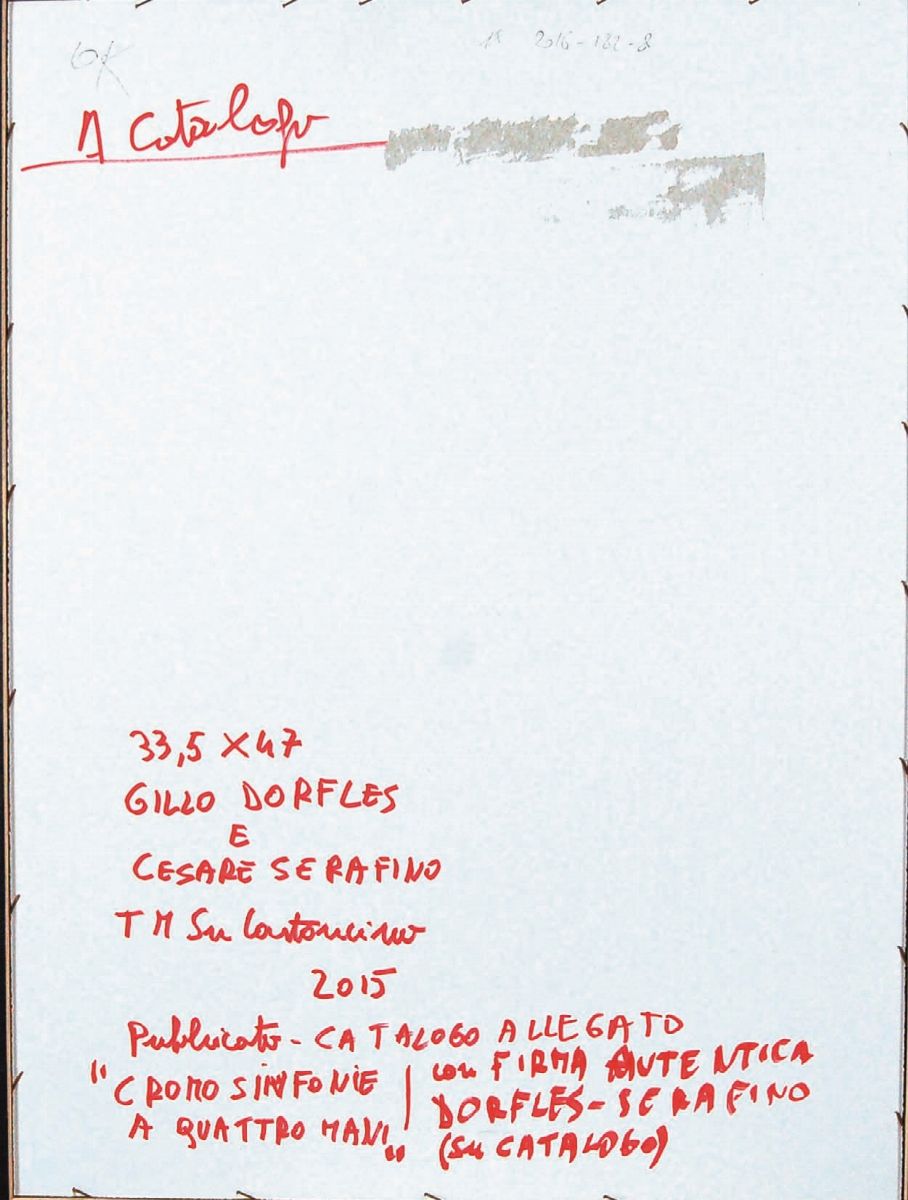 OK
1ª 2016-132-8
A Catalogo
33,5 X 47
GILLO DORFLES
E
CESARE SERAFINO
TM Su Cartoncino
2015
Pubblicato - CATALOGO ALLEGATO
"CROMOSINFONIE | con FIRMA AUTENTICA
A QUATTRO MANI" | DORFLES-SERAFINO
(su CATALOGO)